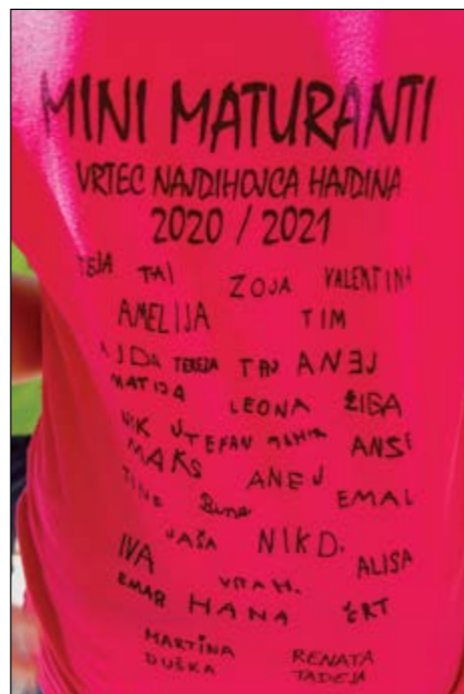 MINI MATURANTI
VRTEC NAJDIHOJCA HAJDINA
2020 / 2021
TEJA TAI ZOJA VALENTINA
AMELIJA TIM
AJDA TEREZA TAJ ANEJ
MATIJA LEONA ŽIGA
NIK ŠTEFAN ANŽE
MAKS ANEJ
TINE EMAL
JAŠA NIK D.
IVA VITA H. ALISA
EMAR HANA ČRT
MARTINA RENATA
DUŠKA TADEJA